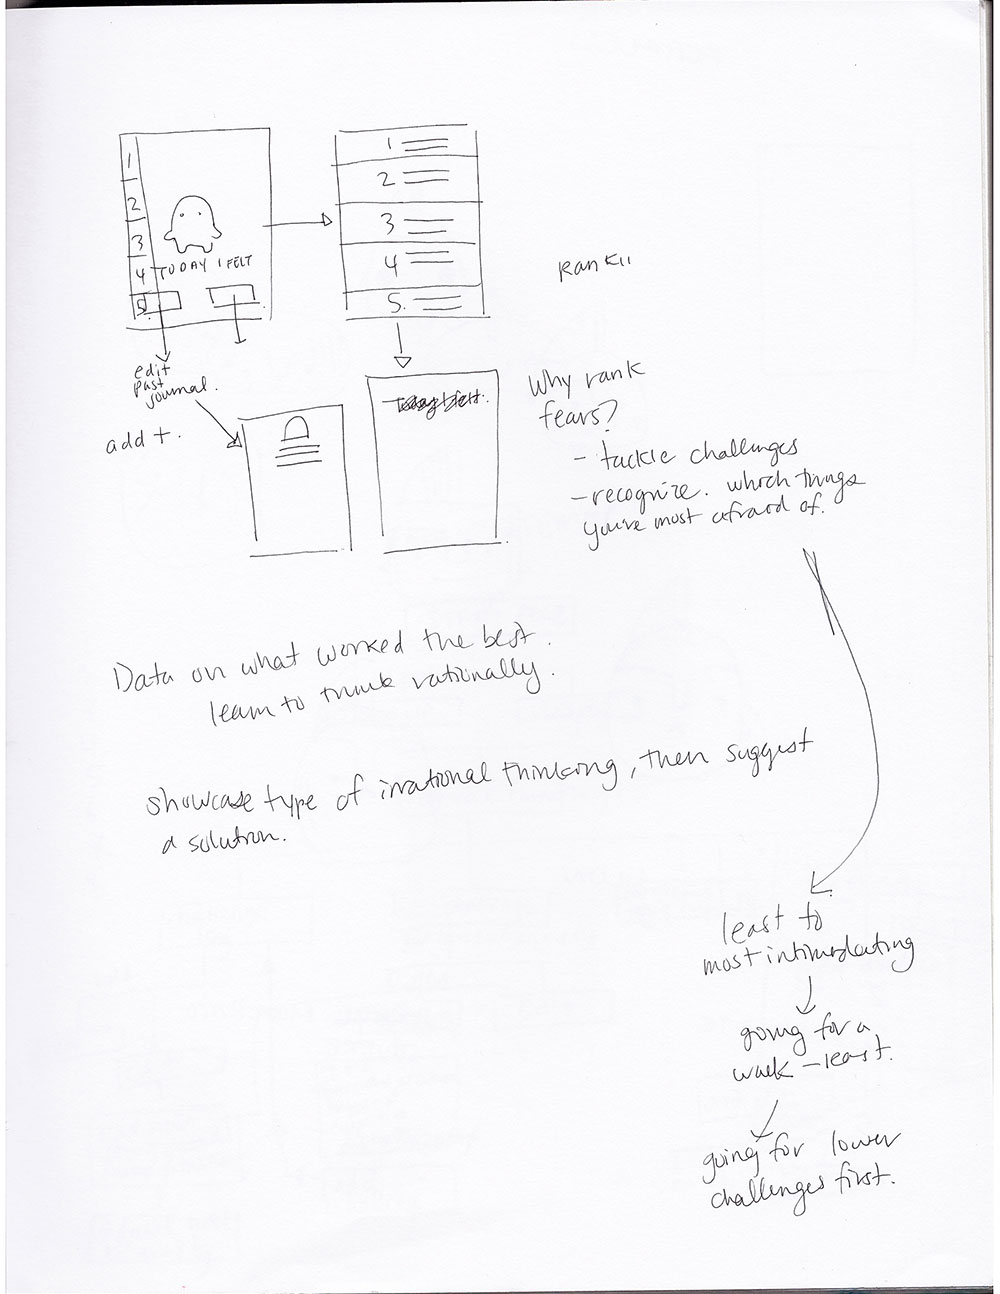 1
2
3
4 TODAY I FELT
5.
1
2
3
4
5.
edit
past
journal.
add +.
Why rank
fears?
- tackle challenges
- recognize. which things
you're most afraid of.
Data on what worked the best.
learn to think rationally.
showcase type of irrational thinking, then suggest
a solution.
least to
most intimidating
going for a
walk - least.
going for lower
challenges first.